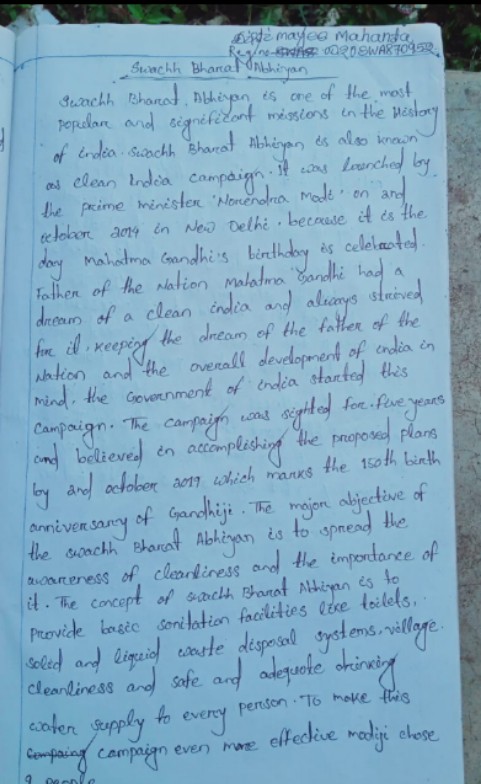 mayee Mahanta
Reg/no- OD20SWA870952
Swachh Bharat Abhiyan
Swachh Bharat Abhiyan is one of the most
Popular and significant missions in the History
of india. Swachh Bharat Abhiyan is also known
as clean India campaign. It was launched by
the prime minister 'Norendra Modi' on 2nd
october 2014 in New Delhi. because it is the
day Mahatma Gandhi's birthday is celebrated.
Father of the Nation Mahatma Gandhi had a
dream of a clean india and always strived
for it. Keeping the dream of the father of the
Nation and the overall development of india in
mind, the Government of India started this
Campaign. The campaign was sighted for five years
and believed in accomplishing the proposed plans
by 2nd october 2019 which marks the 150th birth
anniversary of Gandhiji. The major abjective of
the swachh Bharat Abhiyan is to spread the
awareness of cleanliness and the importance of
it. The concept of swachh Bharat Abhiyan is to
Provide basic sanitation facilities like toilets,
solid and liquid waste disposal systems, village
cleanliness and safe and adequate drinking
water supply to every person. To make this
campaign even more effective modiji chose
9 people